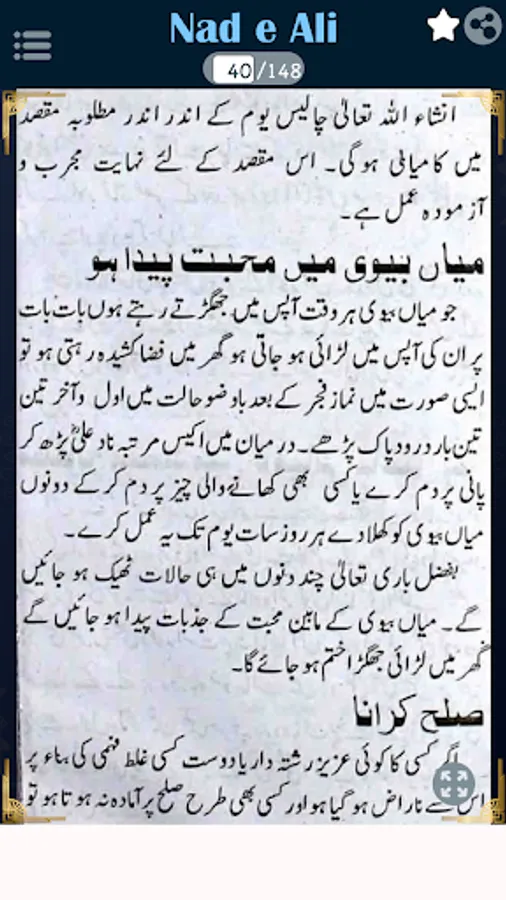 Nad e Ali
40/148
انشاء اللہ تعالیٰ چالیس یوم کے اندر اندر مطلوبہ مقصد
میں کامیابی ہوگی۔ اس مقصد کے لئے نہایت مجرب و
آزمودہ عمل ہے۔
میاں بیوی میں محبت پیدا ہو
جو میاں بیوی ہر وقت آپس میں جھگڑتے رہتے ہوں بات بات
پر ان کی آپس میں لڑائی ہو جاتی ہو گھر میں فضا کشیدہ رہتی ہو تو
ایسی صورت میں نماز فجر کے بعد باوضو حالت میں اول و آخر تین
تین بار درود پاک پڑھے۔ درمیان میں اکیس مرتبہ ناد علیؓ پڑھ کر
پانی پر دم کرے یا کسی بھی کھانے والی چیز پر دم کر کے دونوں
میاں بیوی کو کھلا دے ہر روز سات یوم تک یہ عمل کرے۔
بفضل باری تعالیٰ چند دنوں میں ہی حالات ٹھیک ہو جائیں
گے۔ میاں بیوی کے مابین محبت کے جذبات پیدا ہو جائیں گے
گھر میں لڑائی جھگڑا ختم ہو جائے گا۔
صلح کرانا
اگر کسی کا کوئی عزیز رشتہ دار یا دوست کسی غلط فہمی کی بناء پر
اس سے ناراض ہو گیا ہو اور کسی بھی طرح صلح پر آمادہ نہ ہوتا ہو تو